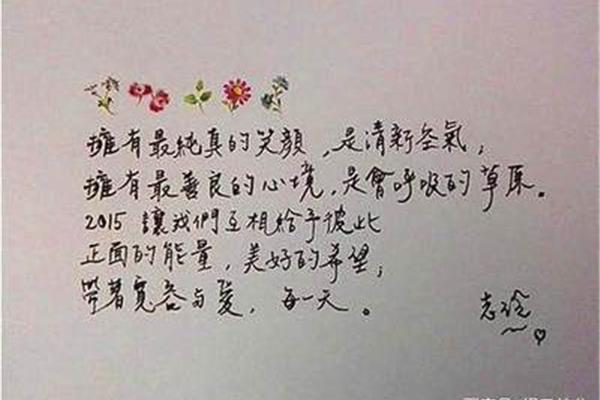 擁有最純真的笑顏，是清新空氣；
擁有最善良的心境，是會呼吸的草原。
2015 讓我們互相給予彼此
正面的能量，美好的希望；
帶著寬容與愛，每一天。
志玲